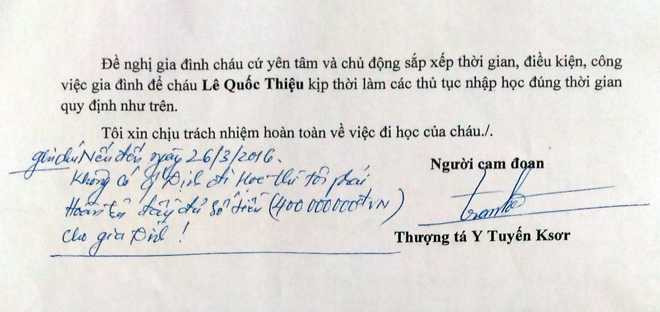 Đề nghị gia đình cháu cứ yên tâm và chủ động sắp xếp thời gian, điều kiện, công
việc gia đình để cháu Lê Quốc Thiệu kịp thời làm các thủ tục nhập học đúng thời gian
quy định như trên.
Tôi xin chịu trách nhiệm hoàn toàn về việc đi học của cháu./.
ghi chú Nếu đến ngày 26/3/2016.
Không có Đi Học thì tôi phải
Hoàn trả đầy đủ số tiền (400.000.000đ VN)
cho gia Đình!
Người cam đoan
Thượng tá Y Tuyến Ksơr